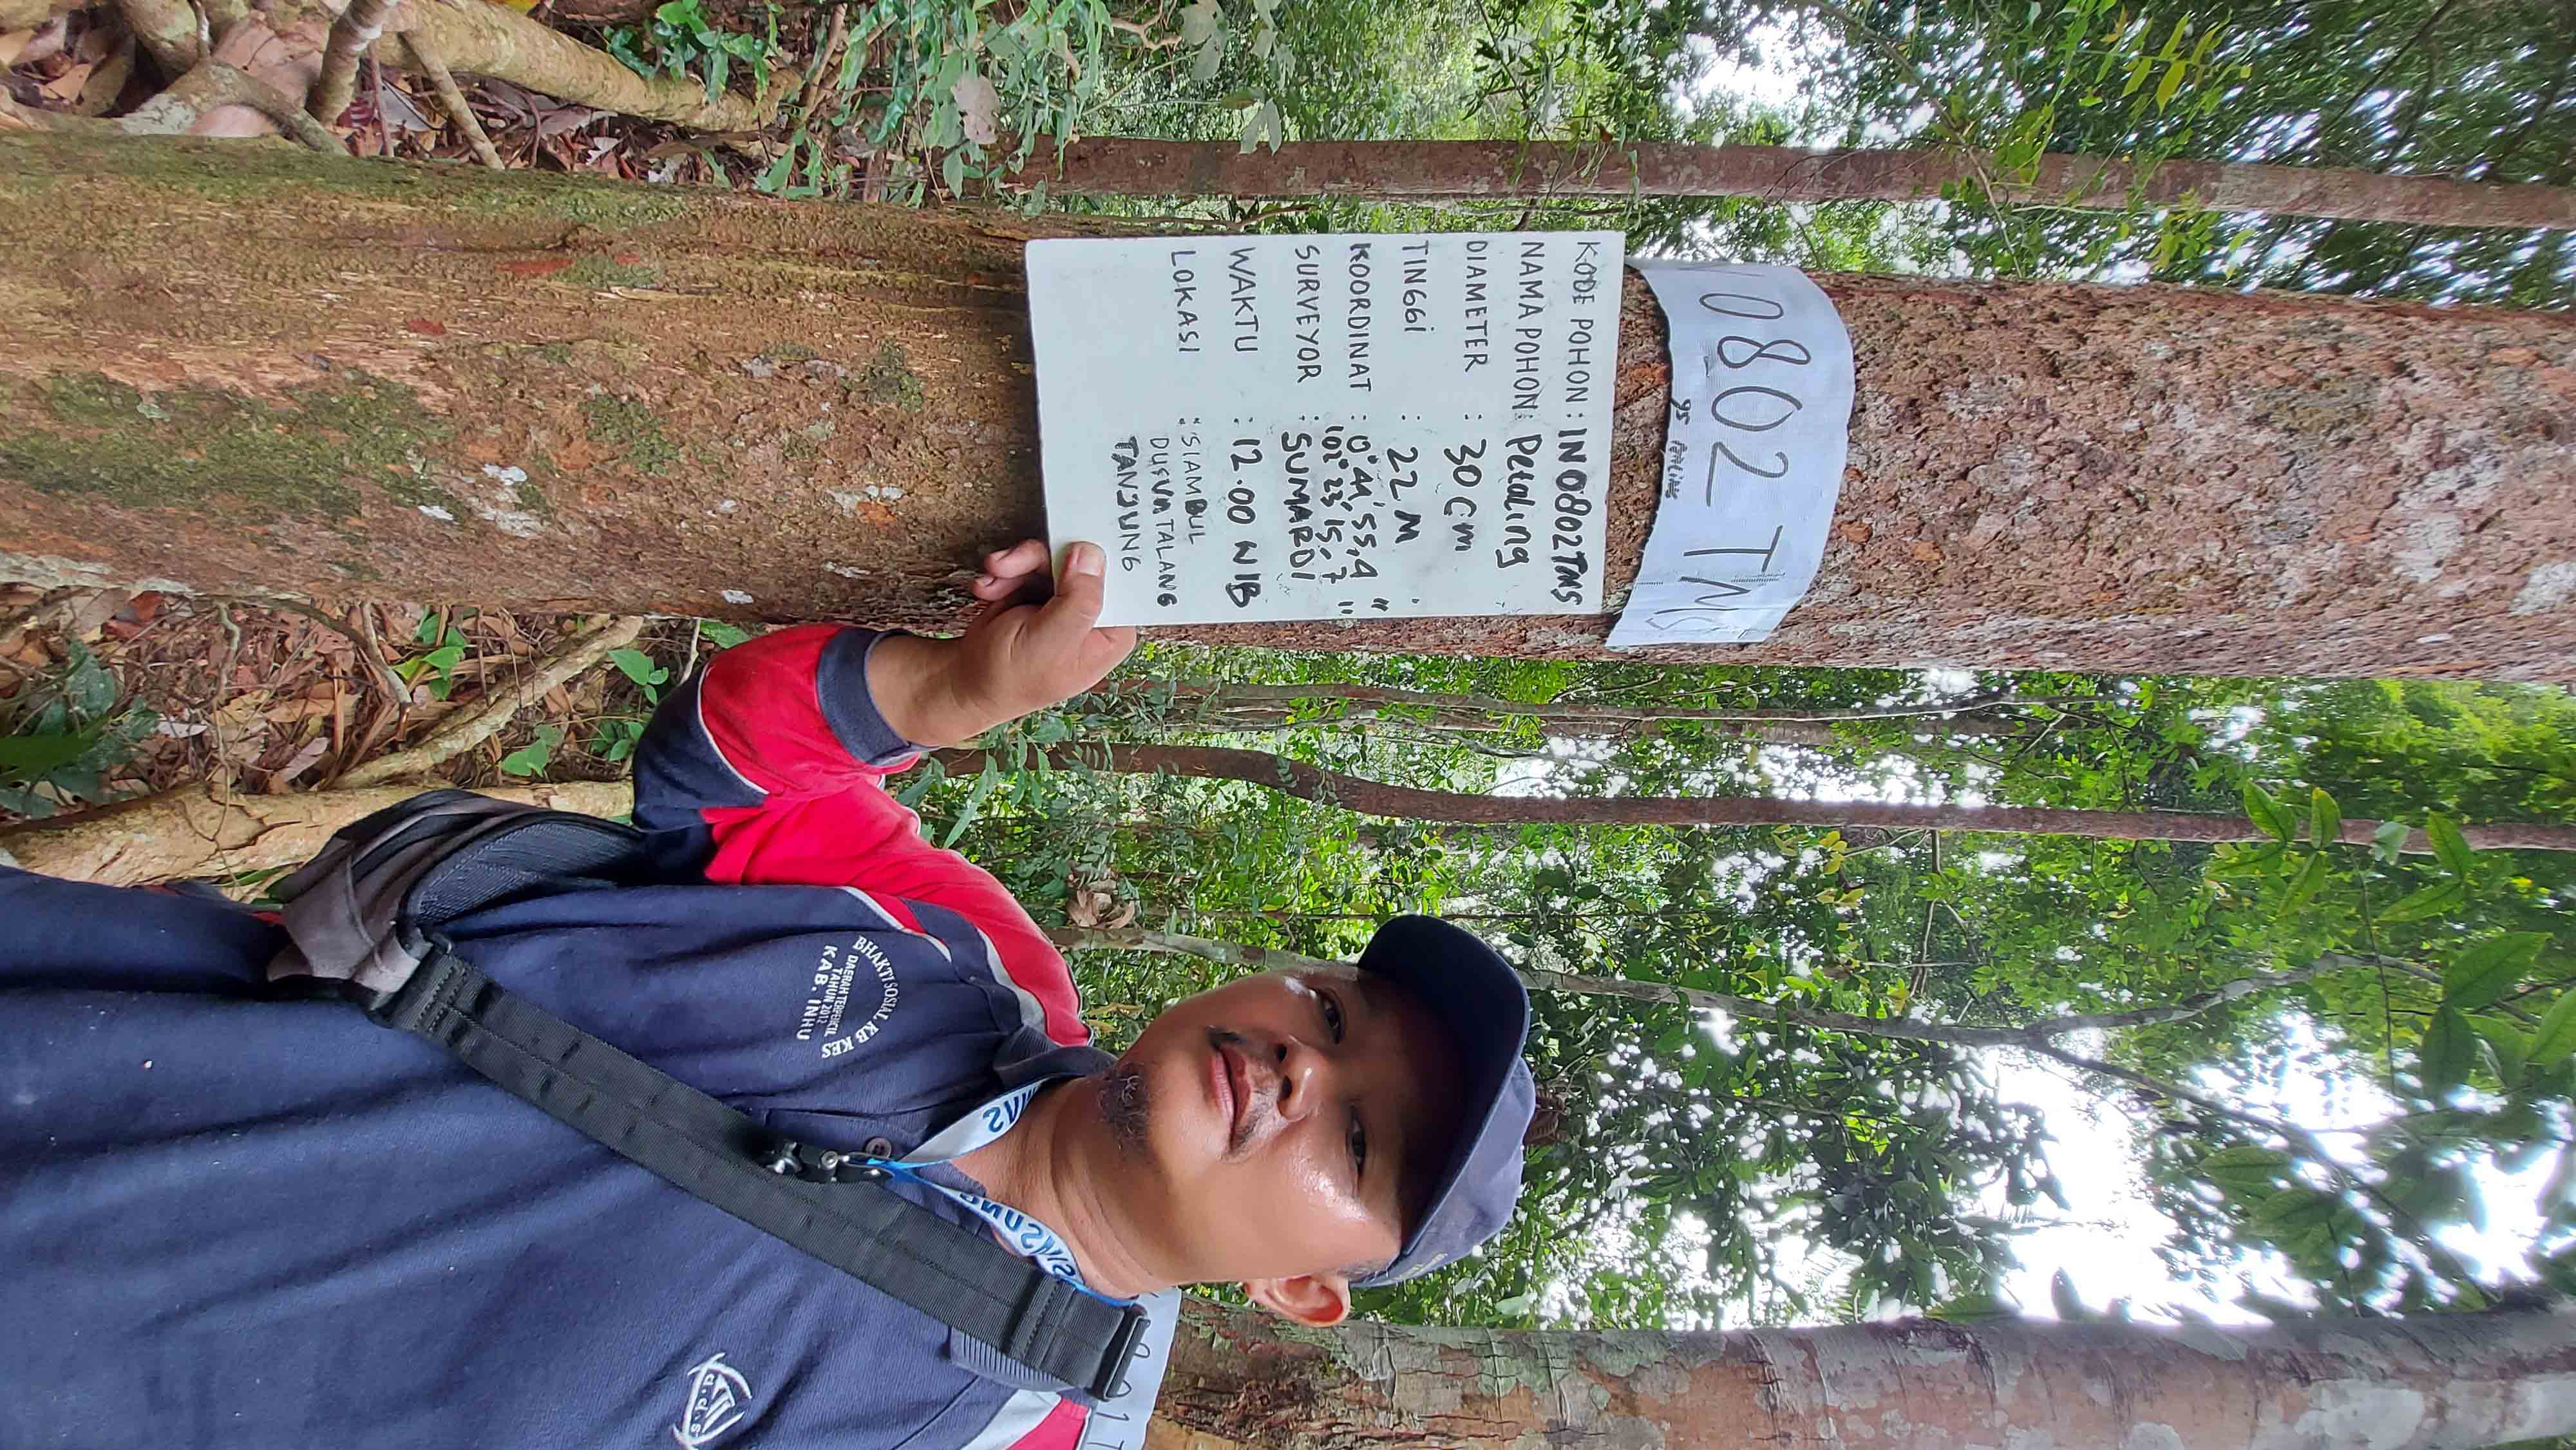 0802 TMS
95
KODE POHON : IN0802TMS
NAMA POHON : Petaling
DIAMETER : 30 cm
TINGGI : 22 M
KOORDINAT : 0° 44' 55,4 "
102° 23' 15,7 "
SURVEYOR : SUMARDI
WAKTU : 12.00 WIB
LOKASI : SIAMBUL
DUSUN TALANG
TANJUNG
BHAKTI SOSIAL KB KES
DAERAH TERPENCIL
TAHUN 2012
KAB. INHU
d.d.s